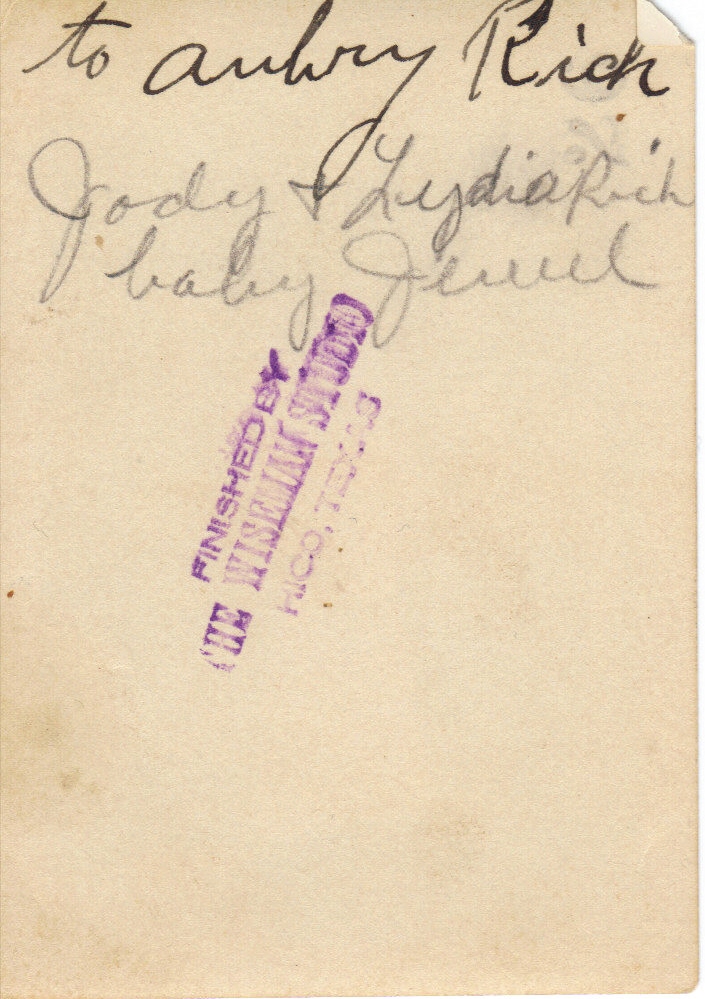 to Aubry Rich
Jody & Lydia Rich
baby Jewel
FINISHED BY
THE WISEMAN STUDIO
HICO, TEXAS